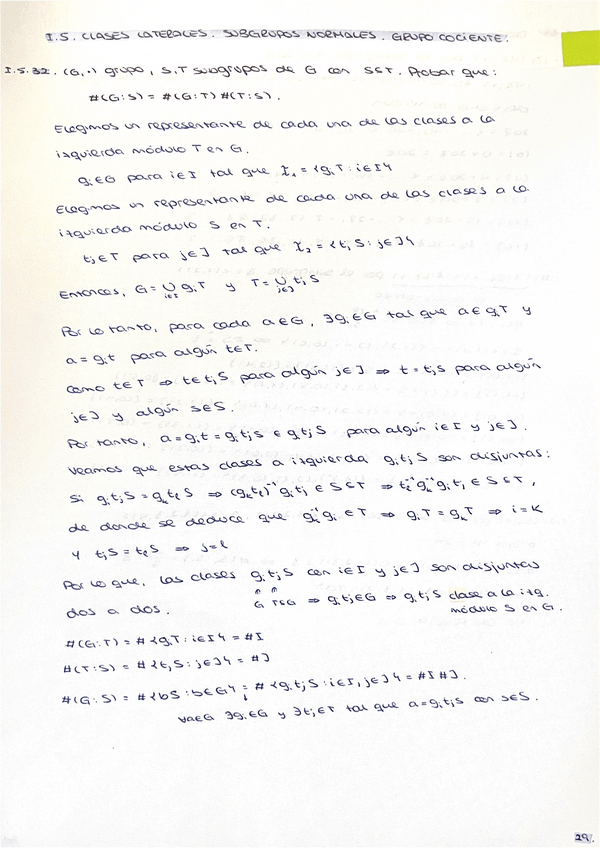 I.5. CLASES LATERALES. SUBGRUPOS NORMALES. GRUPO COCIENTE.
I.5.32. (G,·) grupo, S,T subgrupos de G con S⊆T. Probar que:
#(G:S) = #(G:T)#(T:S).
Elegimos un representante de cada una de las clases a la
izquierda módulo T en G.
gᵢ∈G para i∈I tal que X₁ = {gᵢT : i∈I}
Elegimos un representante de cada una de las clases a la
izquierda módulo S en T.
tⱼ∈T para j∈J tal que X₂ = {tⱼS : j∈J}
Entonces, G = ∪ᵢ∈I gᵢT y T = ∪ⱼ∈J tⱼS
Por lo tanto, para cada a∈G, ∃gᵢ∈G tal que a∈gᵢT y
a = gᵢt para algún t∈T.
Como t∈T ⇒ t∈tⱼS para algún j∈J ⇒ t = tⱼs para algún
j∈J y algún s∈S.
Por tanto, a = gᵢt = gᵢtⱼs ∈ gᵢtⱼS para algún i∈I y j∈J.
Veamos que estas clases a izquierda gᵢtⱼS son disjuntas:
Si gᵢtⱼS = gₖtₗS ⇒ (gₖtₗ)⁻¹gᵢtⱼ ∈ S⊆T ⇒ tₗ⁻¹gₖ⁻¹gᵢtⱼ ∈ S⊆T,
de donde se deduce que gₖ⁻¹gᵢ∈T ⇒ gᵢT = gₖT ⇒ i=k
y tⱼS = tₗS ⇒ j=l
Por lo que, las clases gᵢtⱼS con i∈I y j∈J son disjuntas
dos a dos.
G T⊆G ⇒ gᵢtⱼ∈G ⇒ gᵢtⱼS clase a la izq.
módulo S en G.
#(G:T) = #{gᵢT : i∈I} = #I
#(T:S) = #{tⱼS : j∈J} = #J
#(G:S) = #{bS : b∈G} = #{gᵢtⱼS : i∈I, j∈J} = #I #J.
∀a∈G ∃gᵢ∈G y ∃tⱼ∈T tal que a = gᵢtⱼs con s∈S.
29.